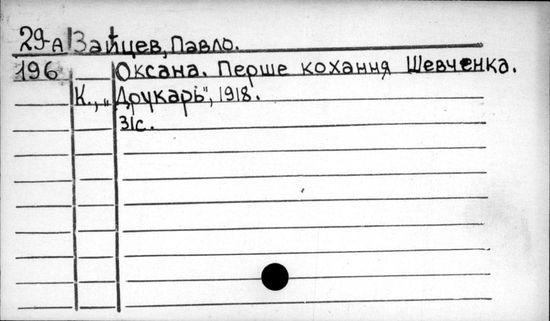 29-А Зайцев, Павло.
196 Оксана. Перше кохання Шевченка.
К., „Друкарь", 1918.
31с.